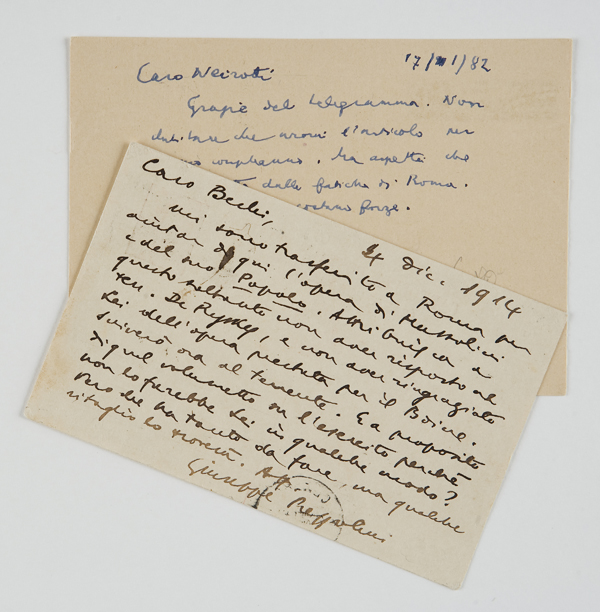 17/1/82
Caro Neirotti
Grazie del telegramma. Non
dubitare che avrai l'articolo per
compleanno. Ma aspetta che
dalle fatiche di Roma.
costano forze.
Caro Becchi,
4 dic. 1914
mi sono trasferito a Roma per
aiutar di qui l'opera di Mussolini
e del suo Popolo. Attribuisca a
questo soltanto non aver risposto al
ten. De e non aver ringraziato
Lei dell'opera prestata per il Boine.
Scriverò ora al tenente. E a proposito
di quel volumetto su l'esercito perché
non lo farebbe Lei in qualche modo?
Vero che ha tanto da fare, ma qualche
ritaglio lo troverà. Aff.mo
Giuseppe Prezzolini